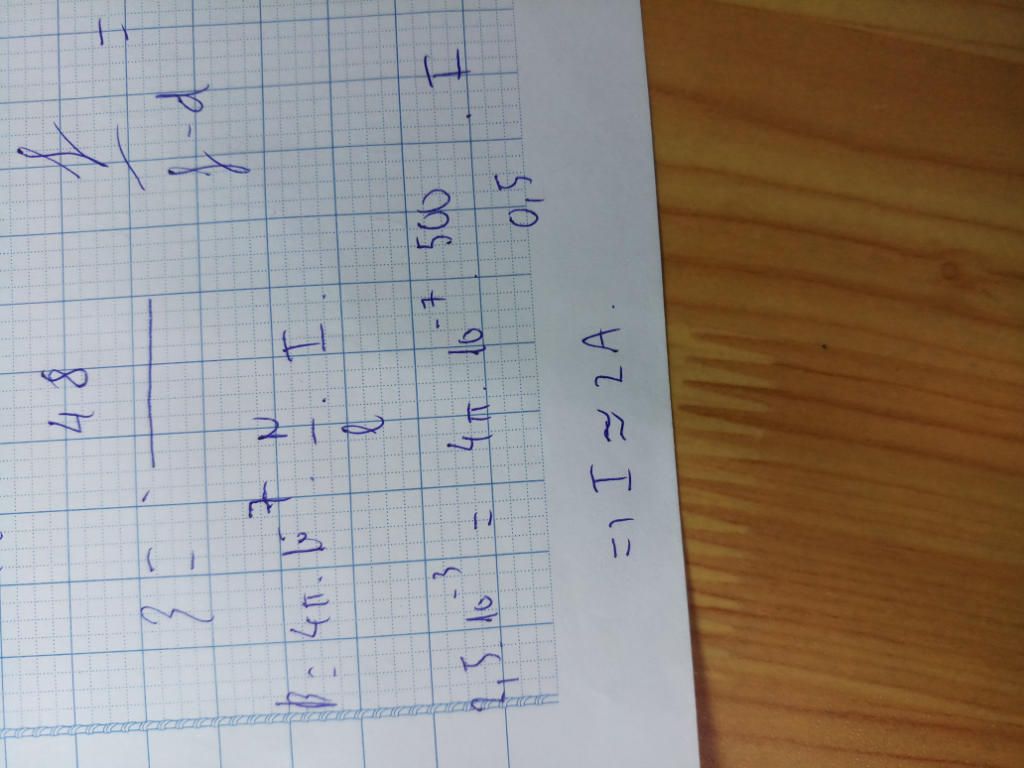 48
B = 4π. 10⁻⁷ . N/l . I .
2,5 10⁻³ = 4π. 10⁻⁷ . 500/0,5 . I
=> I ≈ 2 A.